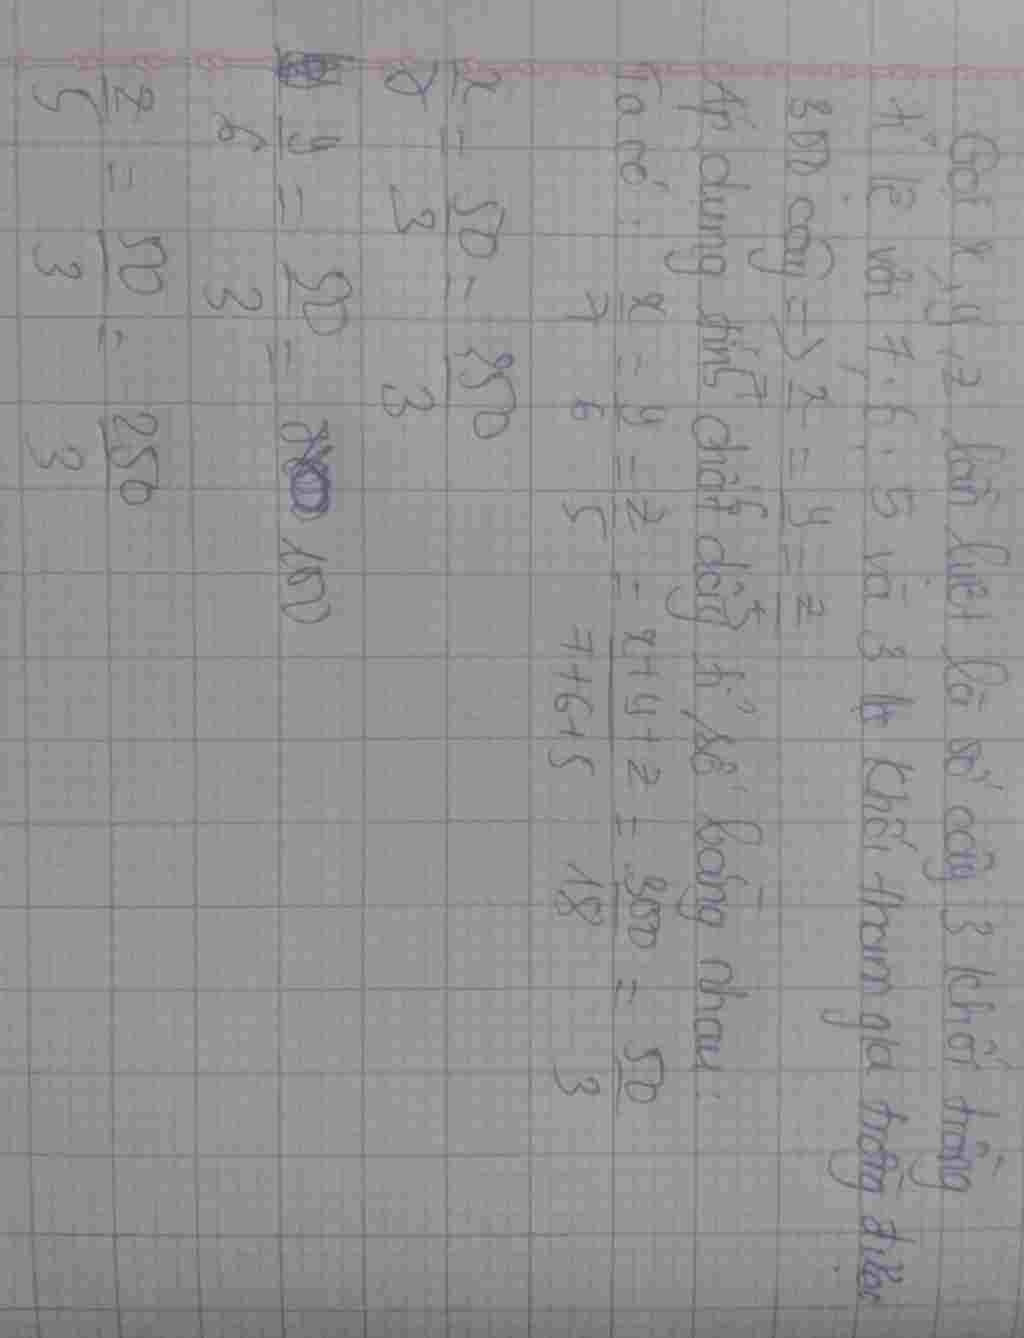 Gọi x, y, z lần lượt là số cây 3 khối trồng
tỉ lệ với 7, 6, 5 và 3 khối tham gia trồng được
300 cây => x = y = z
Áp dụng tính chất dãy tỉ số bằng nhau:
Ta có: x/7 = y/6 = z/5 = x+y+z/7+6+5 = 300/18 = 50/3
x/7 = 50/3 = 350/3
y/6 = 50/3 = 100
z/5 = 50/3 = 250/3